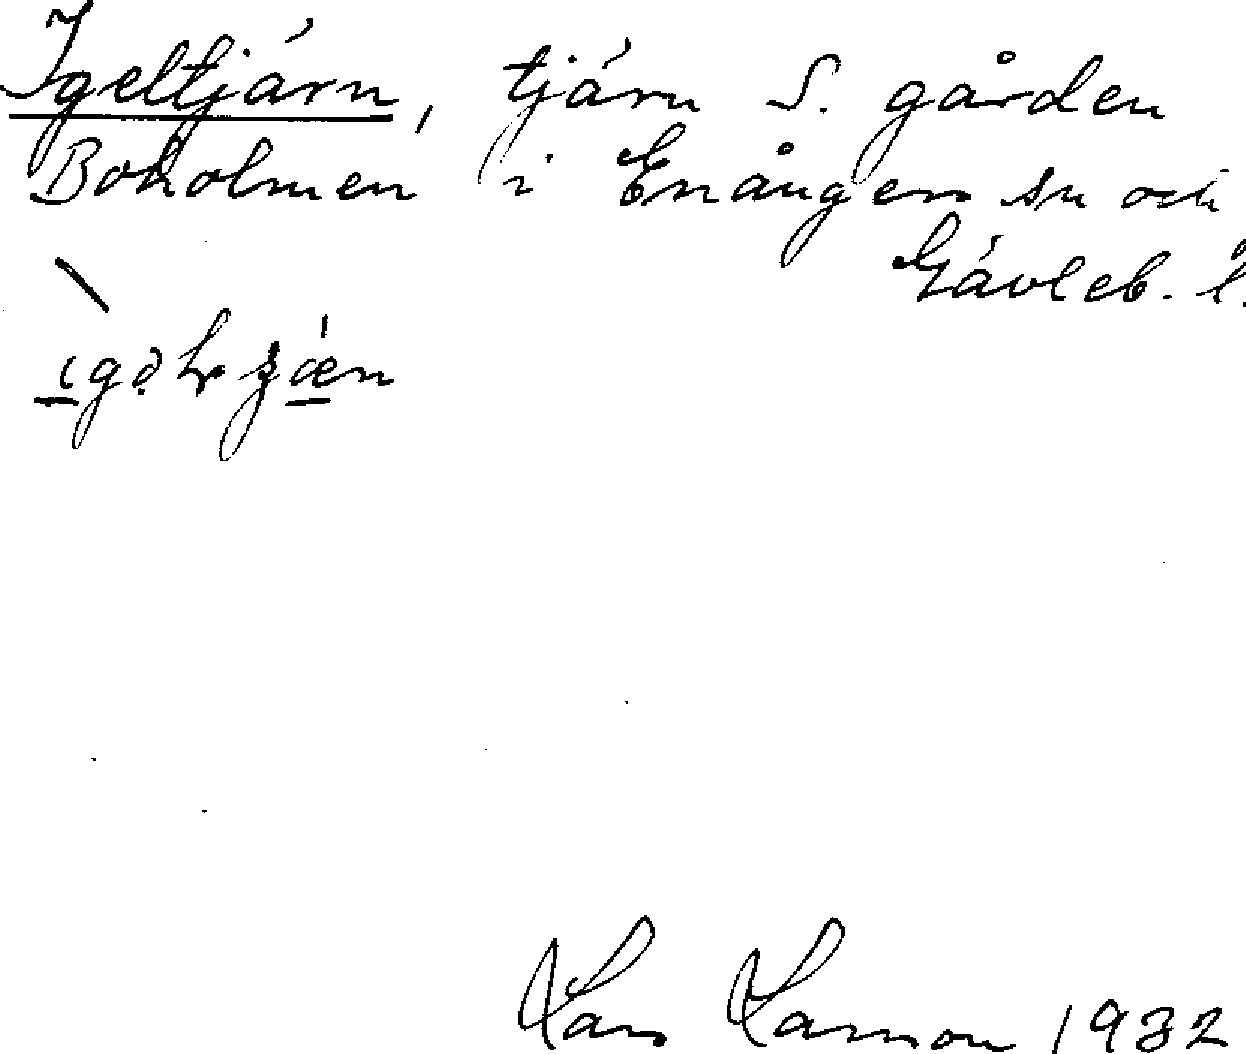 Igeltjärn, tjärn S. gården
Boholmen i Enånger sn och
Gävleb. l.
Lars Larsson 1932